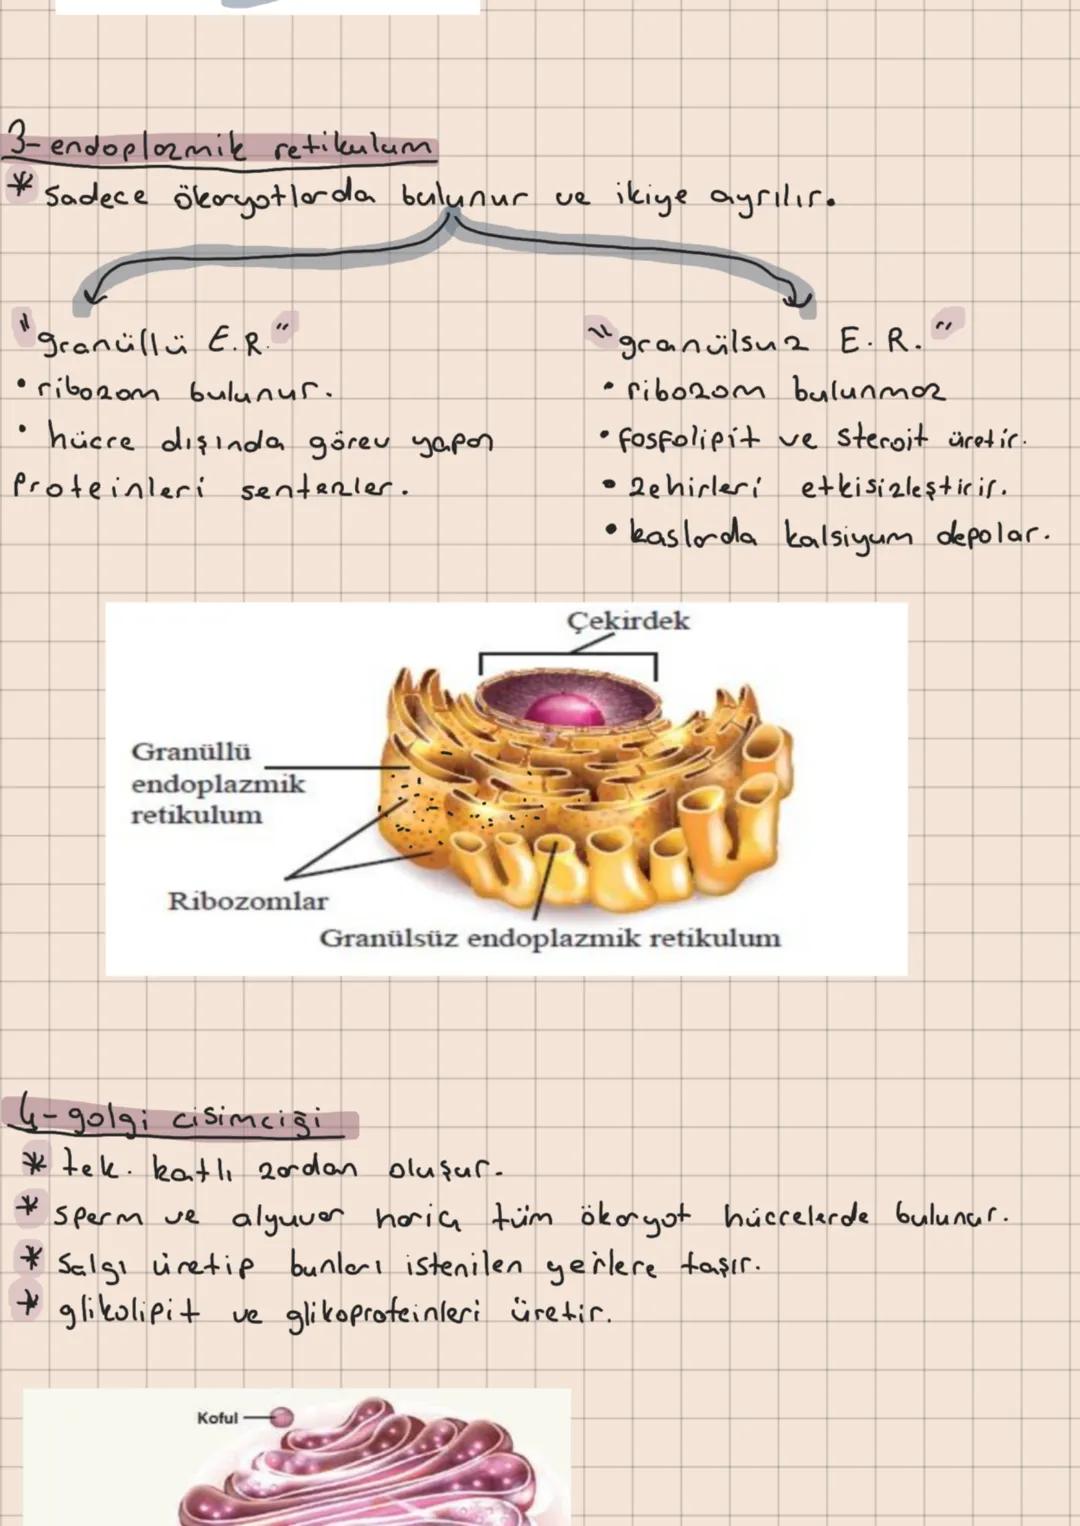 3- endoplazmik retikulum
* Sadece ökaryotlarda bulunur ve ikiye ayrılır.
"granüllü E.R."
• ribozom bulunur.
• hücre dışında görev yapan
Proteinleri sentezler.
"granülsuz E.R."
• ribozom bulunmaz
• fosfolipit ve Steroit üretir.
• zehirleri etkisizleştirir.
• kaslarda kalsiyum depolar.
Çekirdek
Granüllü
endoplazmik
retikulum
Ribozomlar
Granülsüz endoplazmik retikulum
4- golgi cisimciği
* tek. katlı zardan oluşur.
* sperm ve alyuvar hariç tüm ökaryot hücrelerde bulunur.
* Salgı üretip bunları istenilen yerlere taşır.
* glikolipit ve glikoproteinleri üretir.
Koful